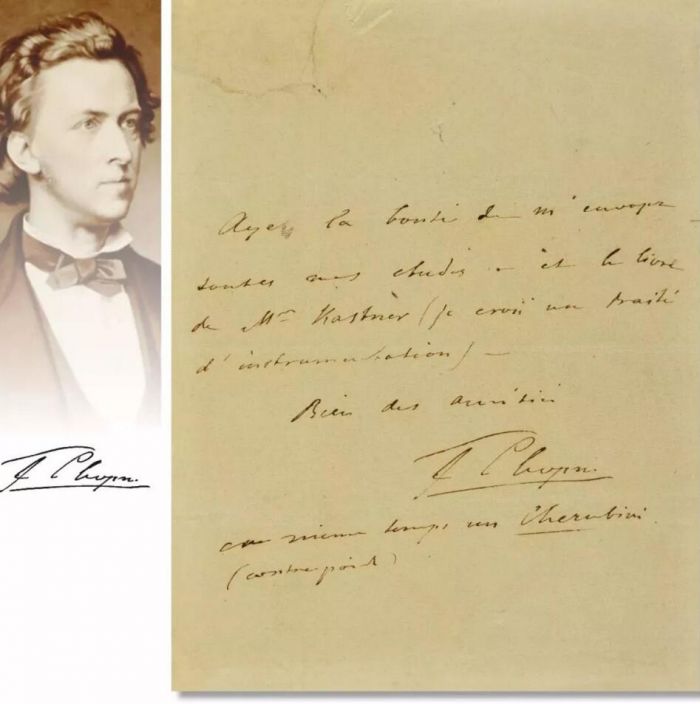 Ayez la bonté de m'envoyer
toutes mes etudes - et le livre
de Mr Kastner (je crois un traité
d'instrumentation) -
Bien des amitiés
F Chopin
F Chopin
en même temps un Cherubini.
(contrepoint)